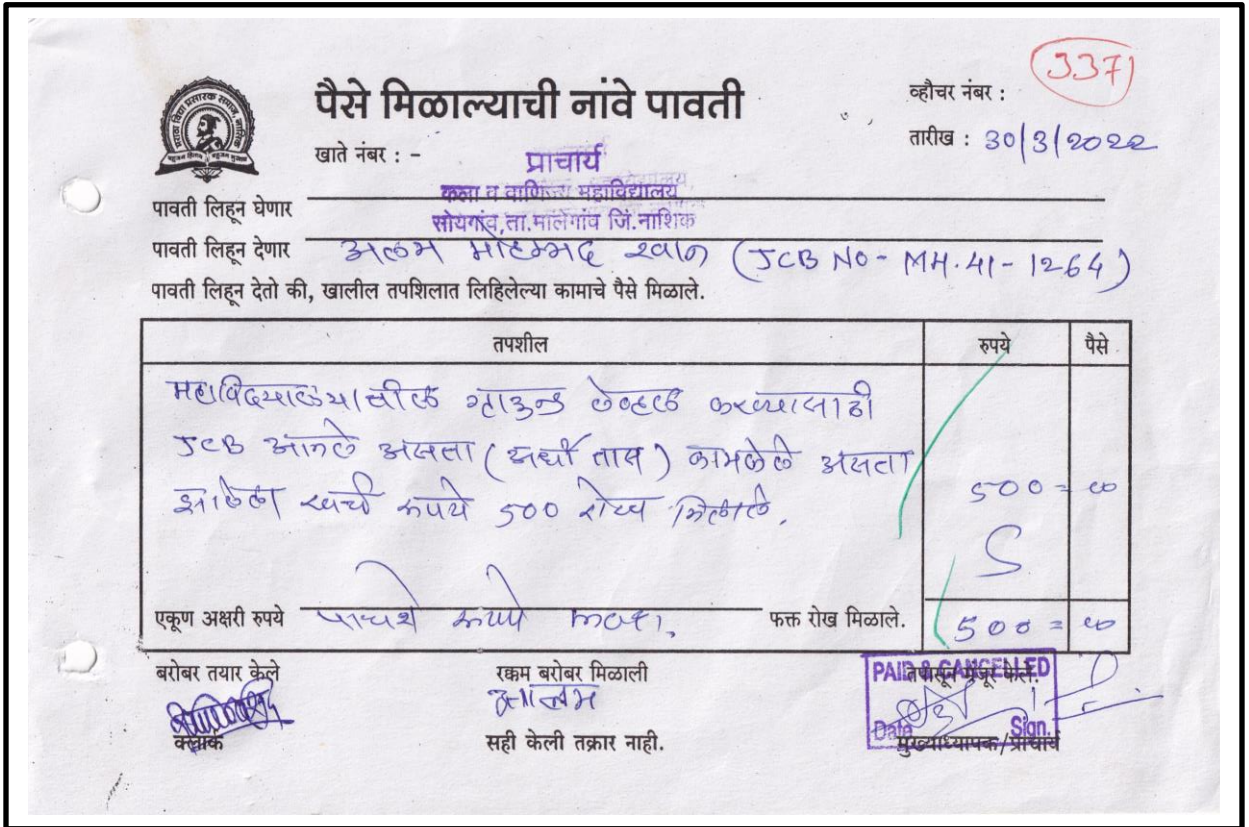 337
पैसे मिळाल्याची नांवे पावती
व्हौचर नंबर :
तारीख : 30/3/2022
मराठा विद्या प्रसारक समाज, नाशिक
खाते नंबर : -
प्राचार्य
कला व वाणिज्य महाविद्यालय,
सोयगांव,ता.मालेगांव जिं.नाशिक
पावती लिहून घेणार
पावती लिहून देणार अलम मोहम्मद खान (JCB NO - MH.41 - 1264)
पावती लिहून देतो की, खालील तपशिलात लिहिलेल्या कामाचे पैसे मिळाले.
तपशील रुपये पैसे
महाविद्यालयातील ग्राउन्ड लेव्हल करण्यासाठी
JCB आनले असता (अर्धा तास) कामकेले असता
झालेला खर्च रुपये 500 रोख मिळाले. 500 = 00
एकूण अक्षरी रुपये पाचशे रुपये फक्त रोख मिळाले. 500 = 00
बरोबर तयार केले रक्कम बरोबर मिळाली तपासून मंजूर केले.
PAID & CANCELLED
आलम
Date Sign.
क्लार्क सही केली तक्रार नाही. मुख्याध्यापक/प्राचार्य